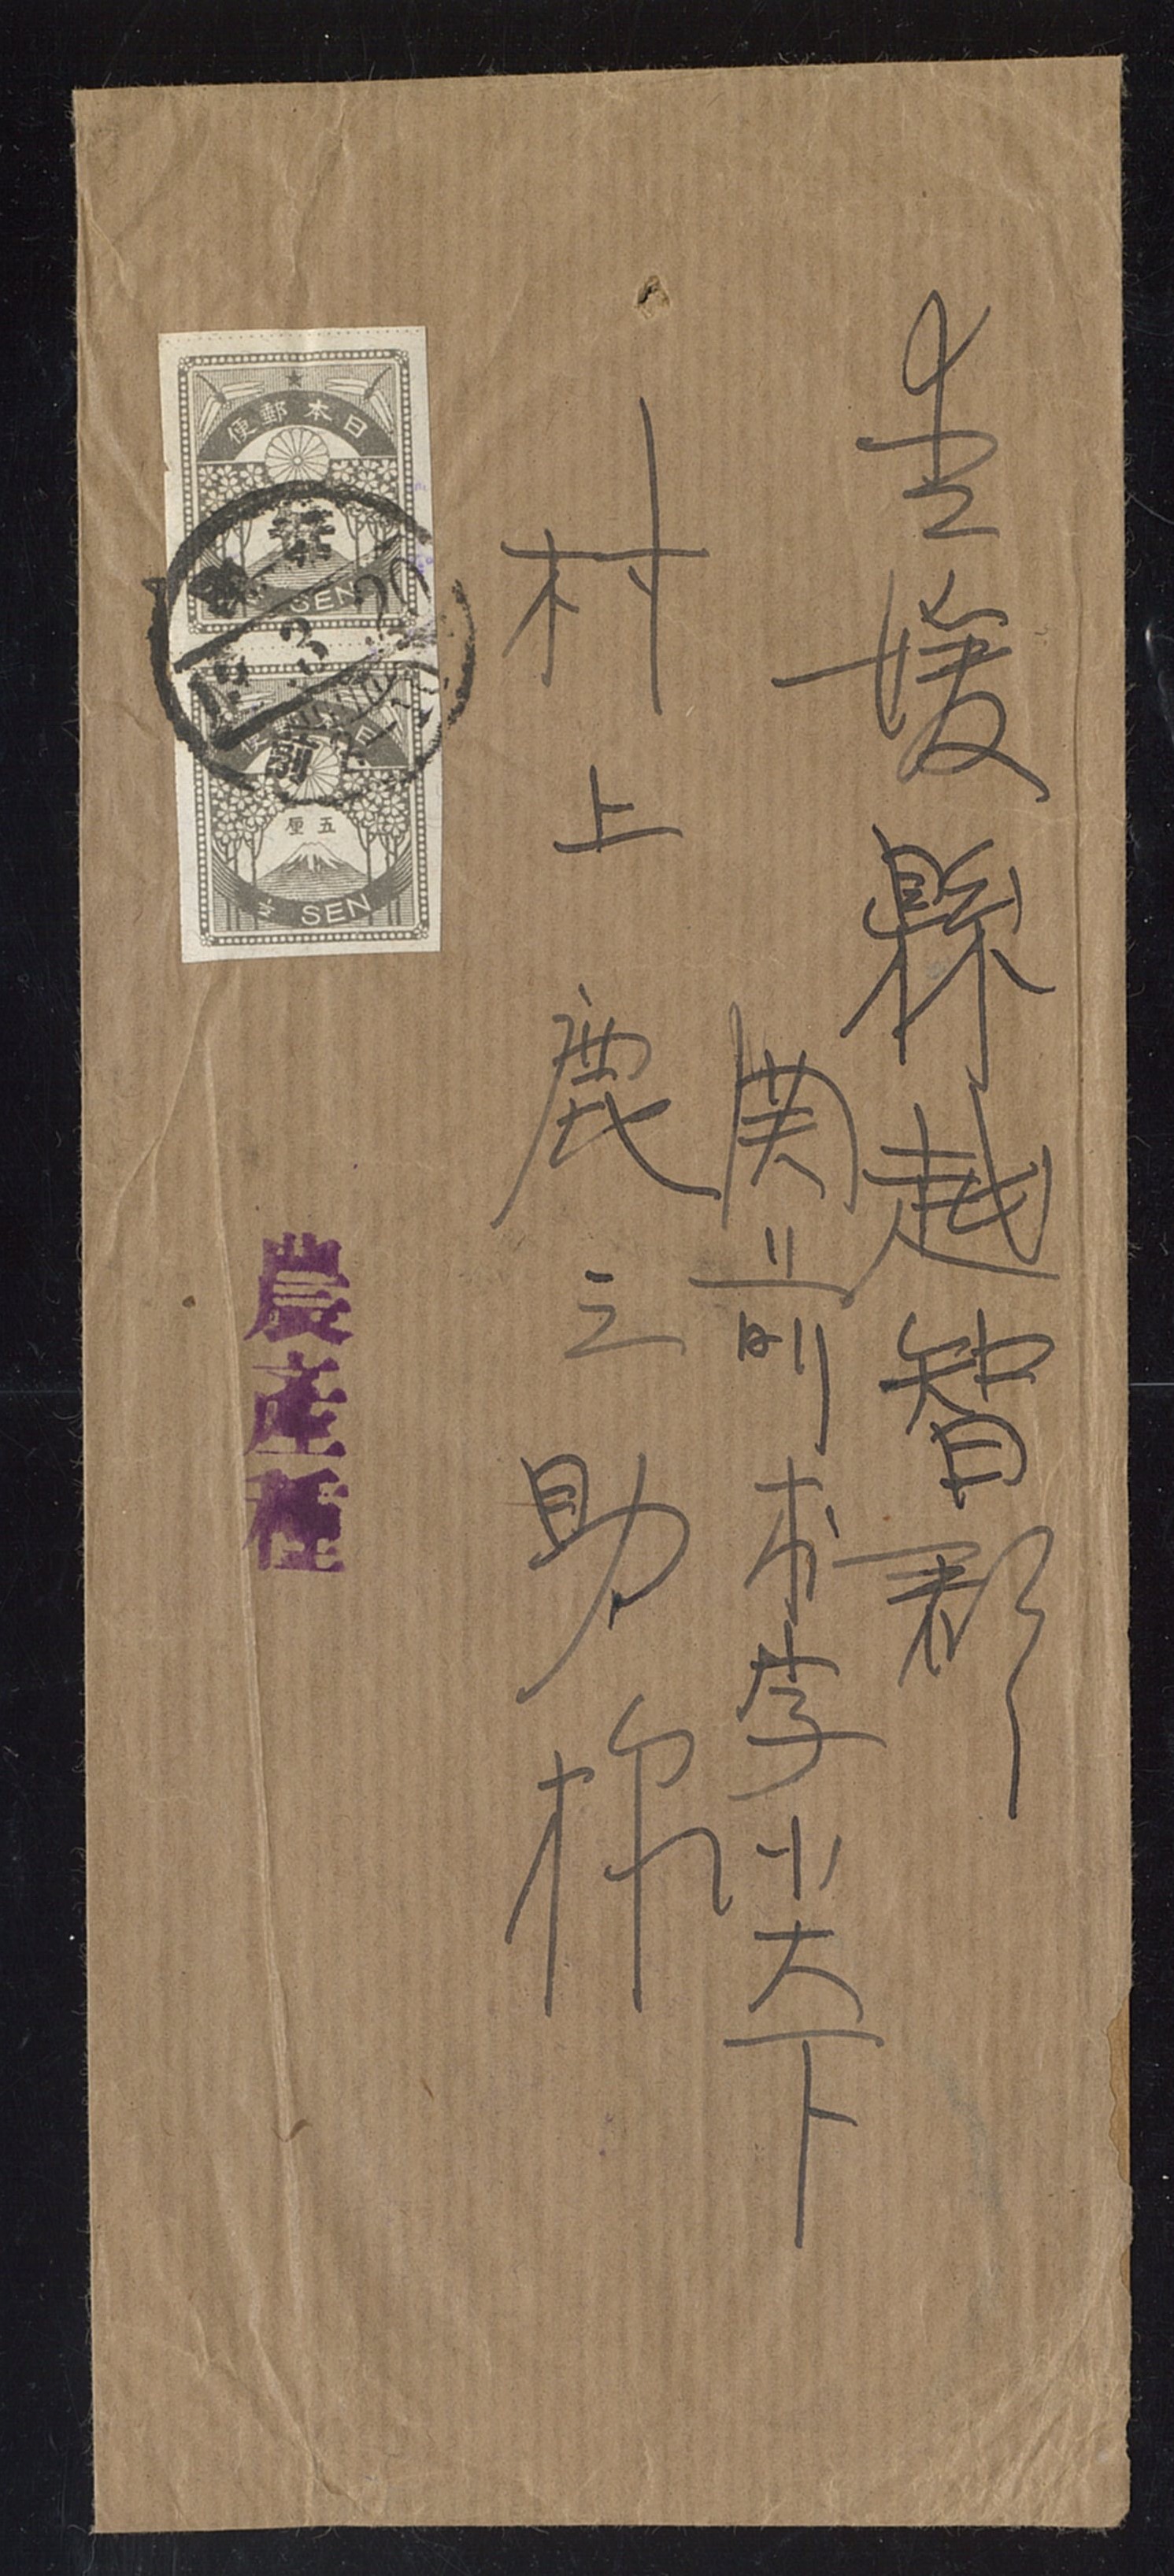 愛媛縣越智郡
関前村字小大下
村上鹿之助様
日本郵便
SEN
3
前
日
五厘
SEN
農産種